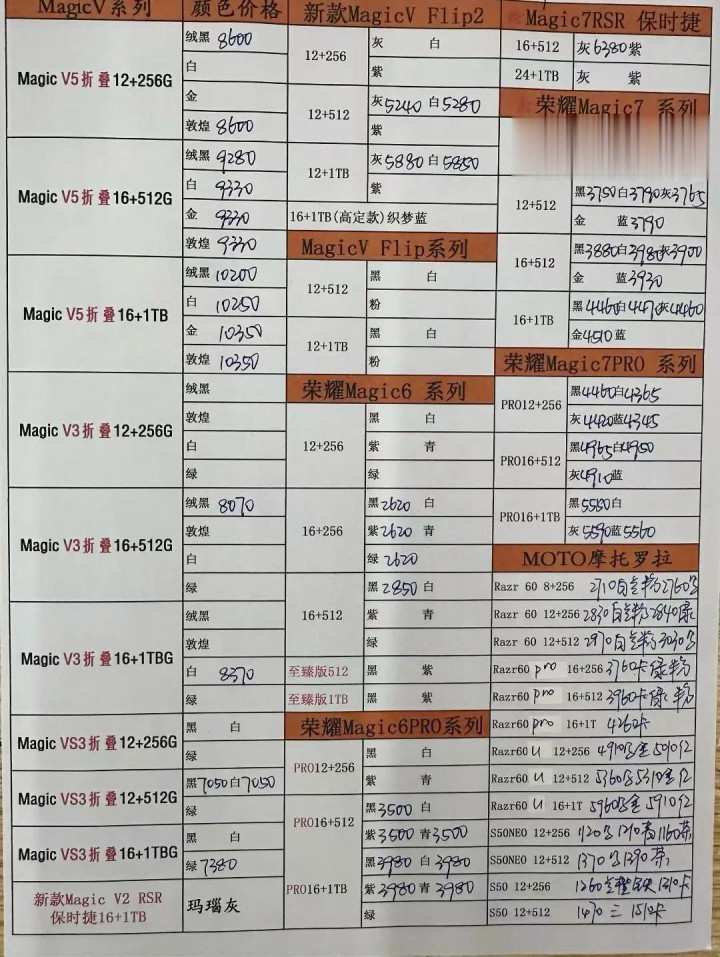 MagicV系列 颜色价格
Magic V5折叠12+256G
绒黑 8600
白
金
敦煌 8600
Magic V5折叠16+512G
绒黑 9280
白 9330
金 9330
敦煌 9330
Magic V5折叠16+1TB
绒黑 10200
白 10250
金 10350
敦煌 10350
Magic V3折叠12+256G
绒黑
敦煌
白
绿
Magic V3折叠16+512G
绒黑 8070
敦煌
白
绿
Magic V3折叠16+1TBG
绒黑
敦煌
白 8370
绿
Magic VS3折叠12+256G
黑 白
绿
Magic VS3折叠12+512G
黑7050白7050
绿
Magic VS3折叠16+1TBG
黑 白
绿7380
新款Magic V2 RSR
保时捷16+1TB
玛瑙灰
新款MagicV Flip2
12+256
灰 白
紫
12+512
灰5240 白5280
紫
12+1TB
灰5880白5850
紫
16+1TB(高定款)织梦蓝
MagicV Flip系列
12+512
黑 白
粉
12+1TB
黑 白
粉
荣耀Magic6 系列
12+256
黑 白
紫 青
绿
16+256
黑2620 白
紫2620 青
绿 2620
16+512
黑2850白
紫 青
绿
至臻版512 黑 紫
至臻版1TB 黑 紫
荣耀Magic6PRO系列
PRO12+256
黑 白
紫 青
PRO16+512
黑3500 白
紫3500 青3500
PRO16+1TB
黑3980 白3980
紫3980青 3980
绿
Magic7RSR 保时捷
16+512 灰6380紫
24+1TB 灰 紫
荣耀Magic7 系列
12+512
黑3750白3790灰3765
金 蓝3790
16+512
黑3880白3980灰3900
金 蓝3930
16+1TB
黑4460白4470灰4460
金4510蓝
荣耀Magic7PRO 系列
PRO12+256
黑4460白4365
灰4420蓝4345
PRO16+512
黑4965白4950
灰4910蓝
PRO16+1TB
黑5550白
灰5590蓝5560
MOTO摩托罗拉
Razr 60 8+256 2710白 粉2760
Razr 60 12+256 2830白 粉2840绿
Razr 60 12+512 2970白 粉3030
Razr60 pro 16+256 3760卡绿粉
Razr60 pro 16+512 3960卡绿粉
Razr60 pro 16+1T 4260卡
Razr60 U 12+256 4910 金5010红
Razr60 U 12+512 5360 5310金红
Razr60 U 16+1T 5960 金5910红
S50NEO 12+256 1120 1210青1160茶
S50NEO 12+512 1370 1390茶
S50 12+256 1260 1310卡
S50 12+512 1470 三 1510卡